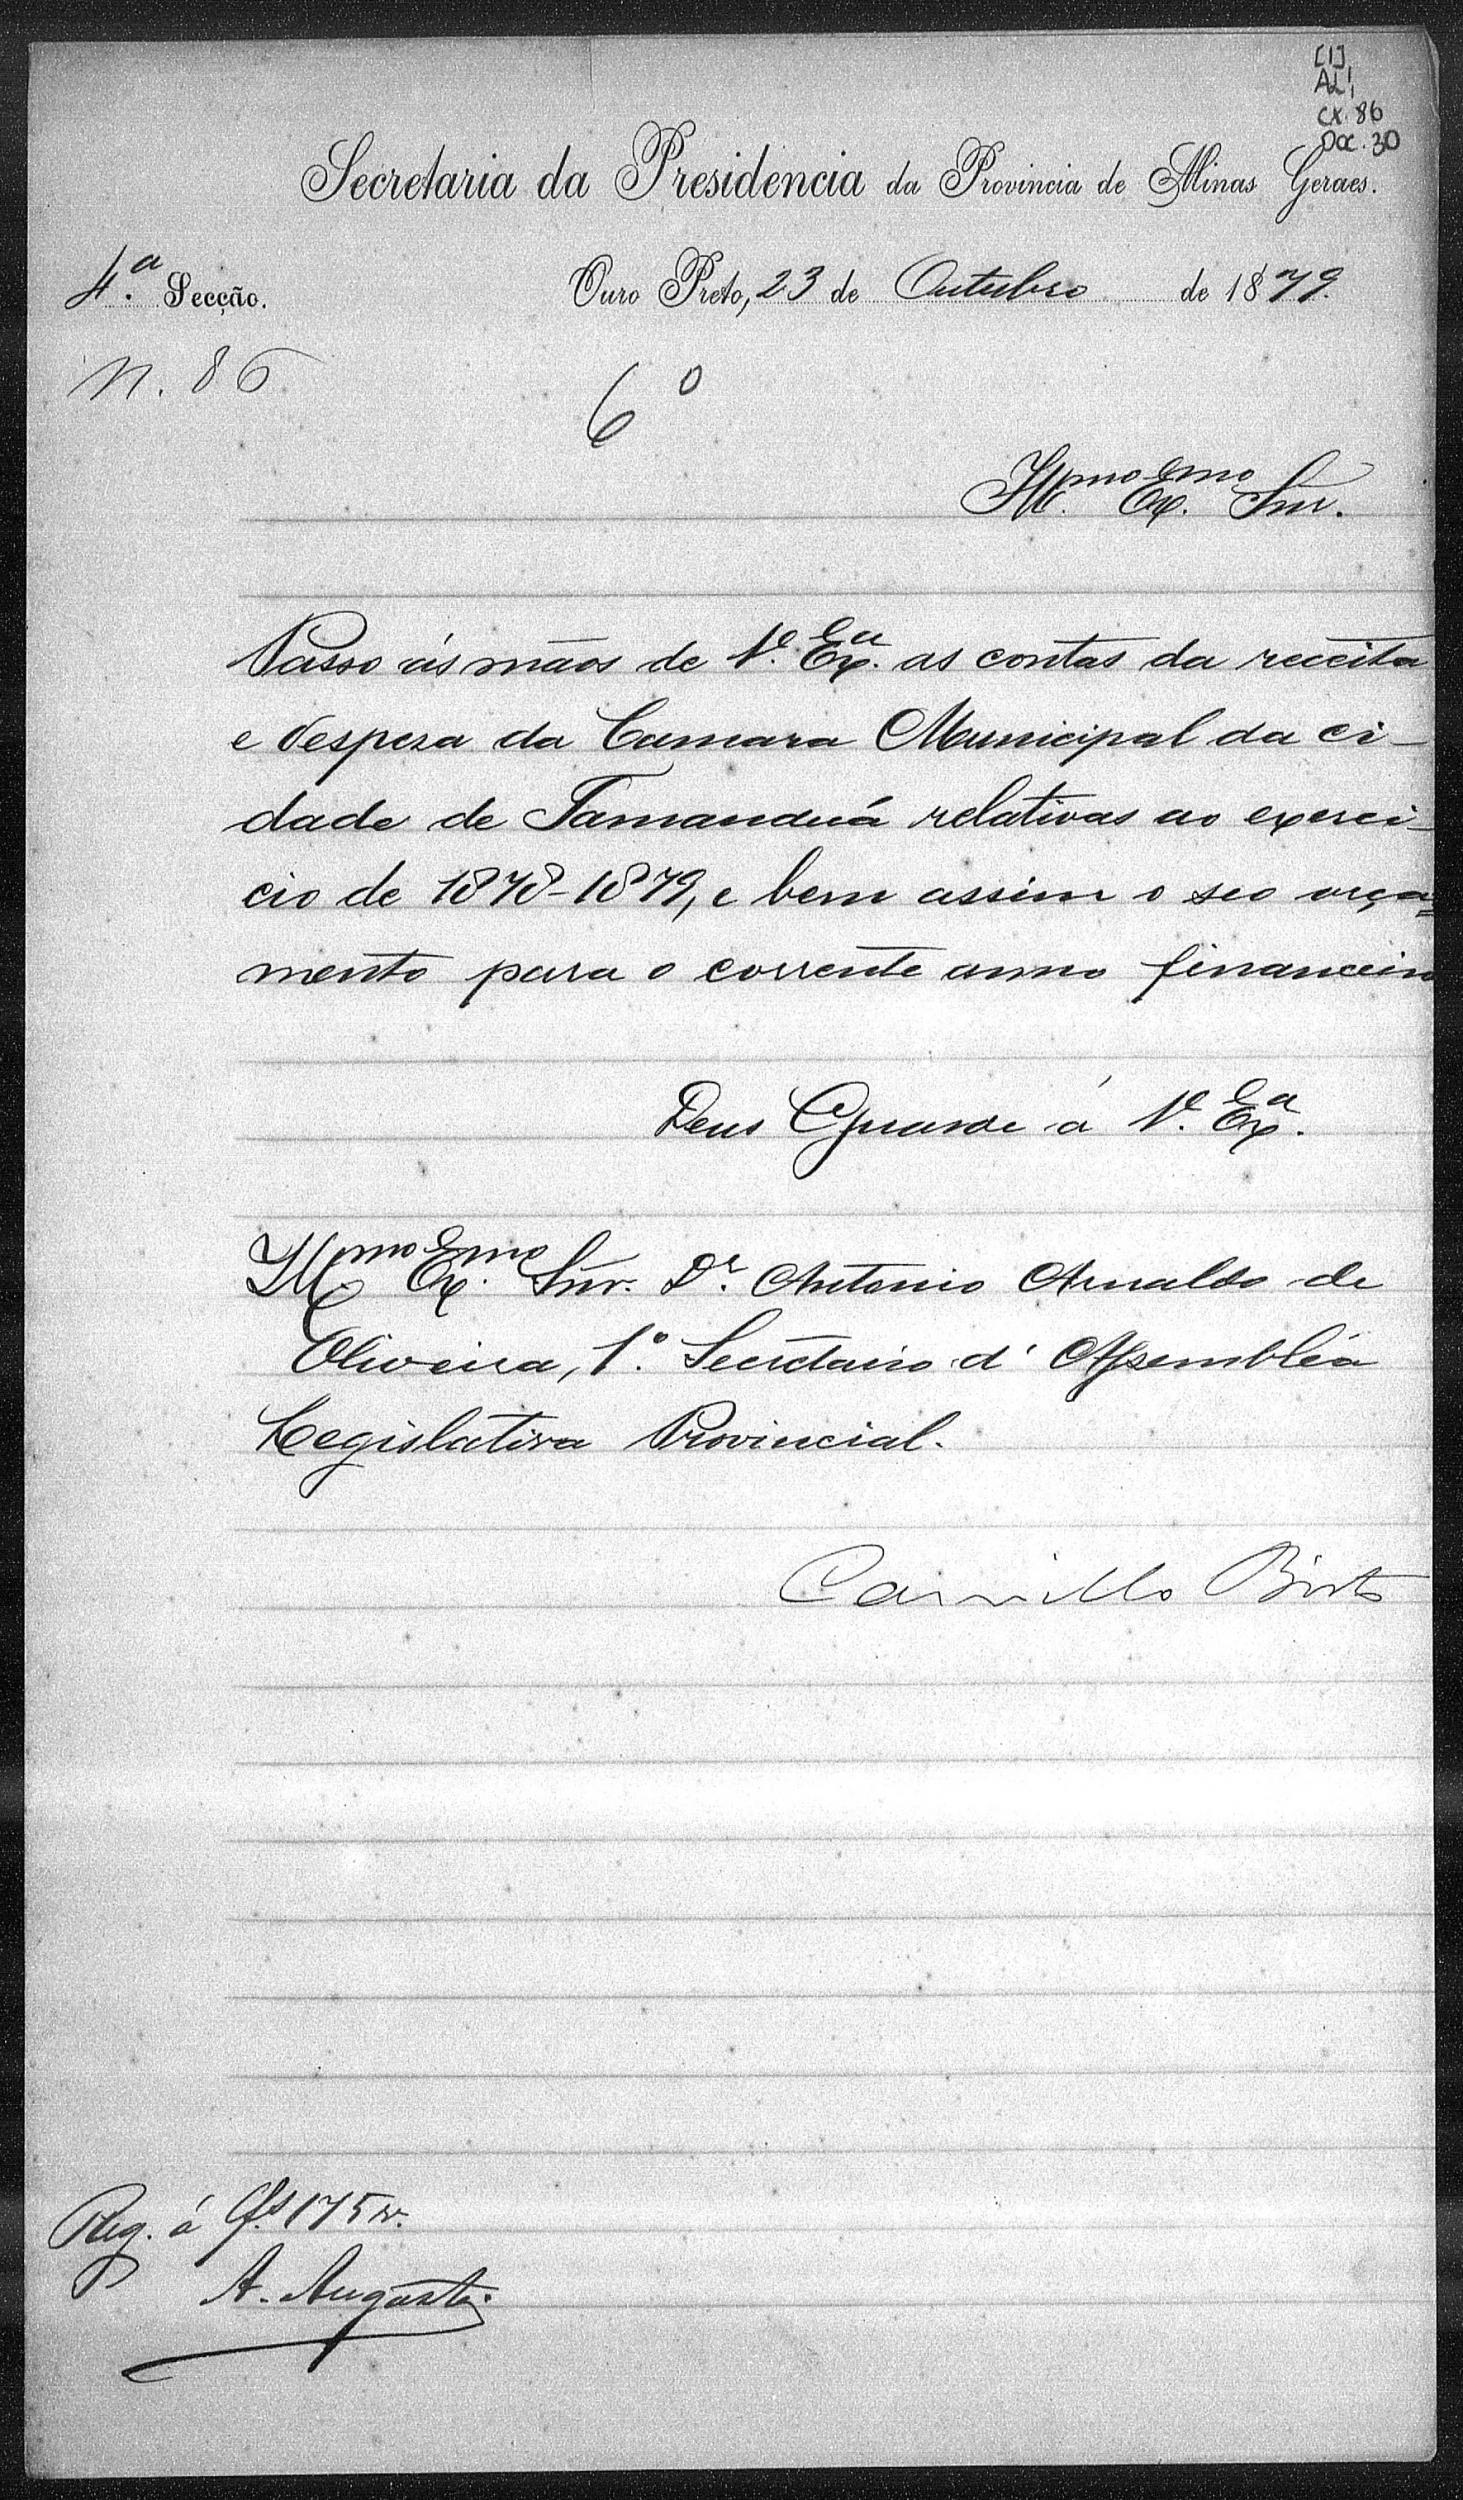 [1]
AL1
CX. 86
DOC. 30
Secretaria da Presidencia da Provincia de Minas Geraes.
4.ª Secção. Ouro Preto, 23 de Outubro de 1879.
N. 86
6º
Ill.mo Ex.mo Snr.
Passo ás mãos de V. Ex.ª as contas da receita
e despeza da Camara Municipal da ci-
dade de Tamanduá relativas ao exerci-
cio de 1878-1879, e bem assim o seo orça=
mento para o corrente anno financeiro
Deus Guarde á V. Ex.ª
Ill.mo Ex.mo Snr. Dr. Antonio Arnaldo de
Oliveira, 1.º Secretario d'Assembléa
Legislativa Provincial.
Camillo Brito
Reg. á fs 175 v.
A. Augusto